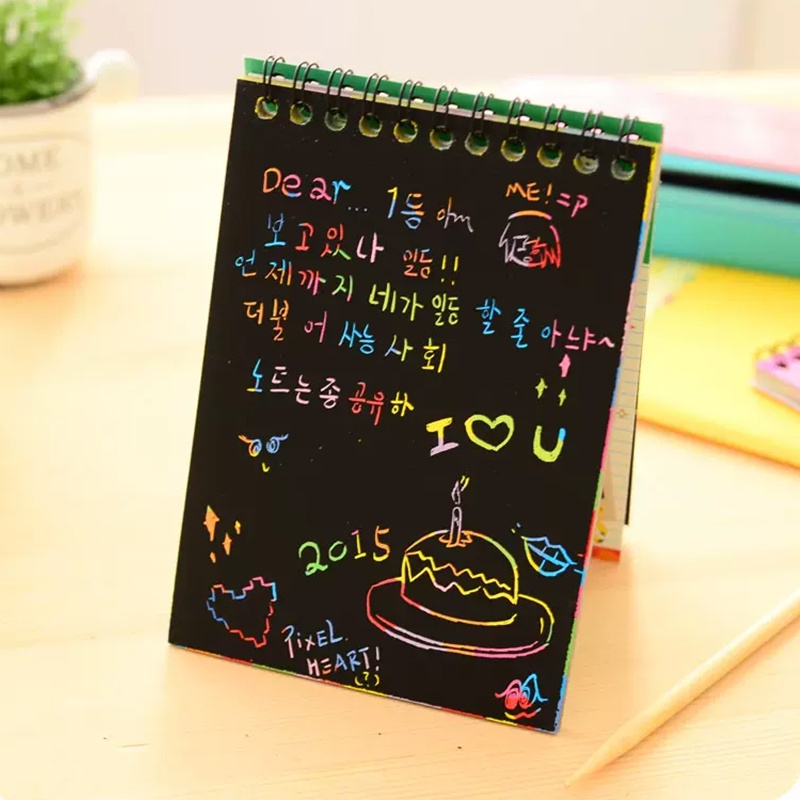 Dear... 1등 am
ME! =P
보고있나 일등!!
언제까지 네가 일등 할 줄 아냐~
더불어 사능 사회
노트는 좀 공유하
I ♡ U
2015
PiXEL
HEART!
(?)